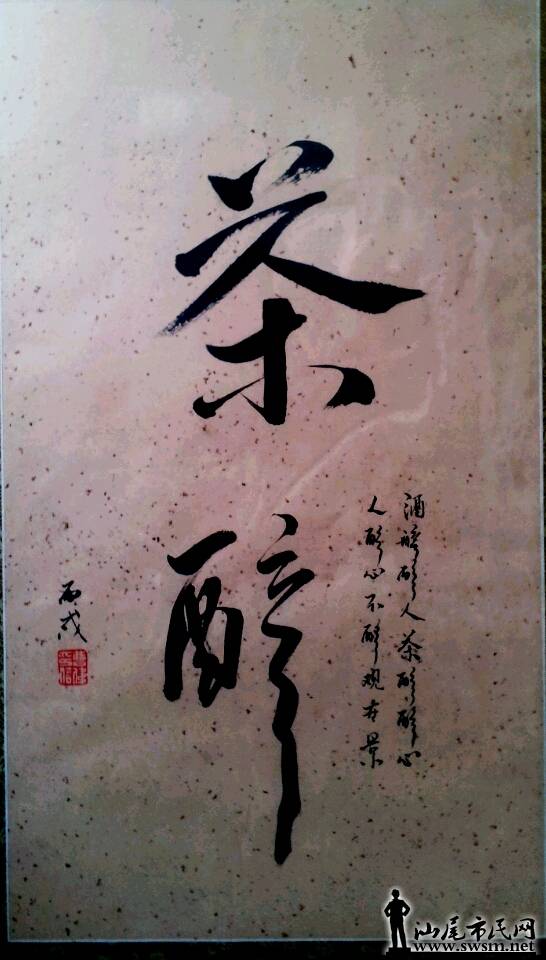 茶醉
酒醉醉人茶醉醉心
人醉心不醉观古景
丙戌
汕尾市民网
www.swsm.net